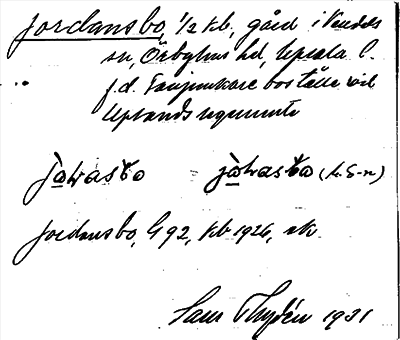 Jordansbo, 1/2 kb, gård i Vendels
sn, Örbyhus hd, Upsala l.
f.d. Fanjunkare boställe vid
Uplands regemente
jo̱ɹ̀asbo jo̱ɹ̀asbo (L. S-n)
Jordansbo, G 92, kb 1926, ek.
Sam Thydén 1931